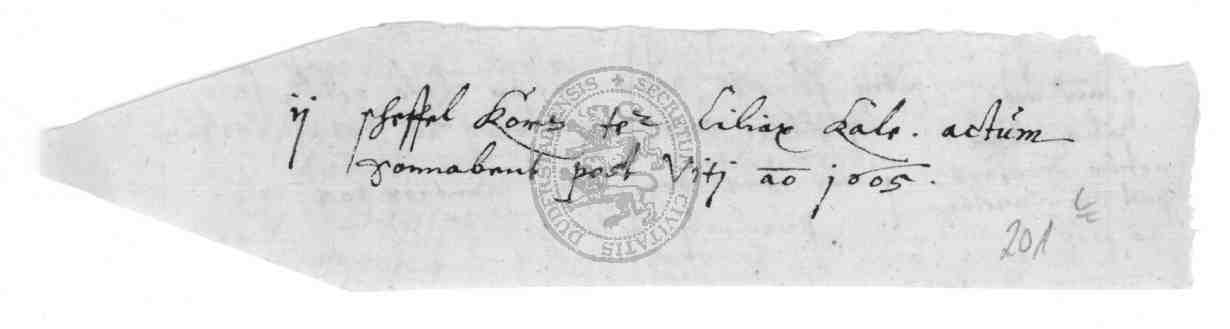 ij scheffel Korn ter Ciliax Kale. actum
Sonnabent post Viti ao 1605.
201
SECRETUM CIVITATIS DUDERSTADENSIS